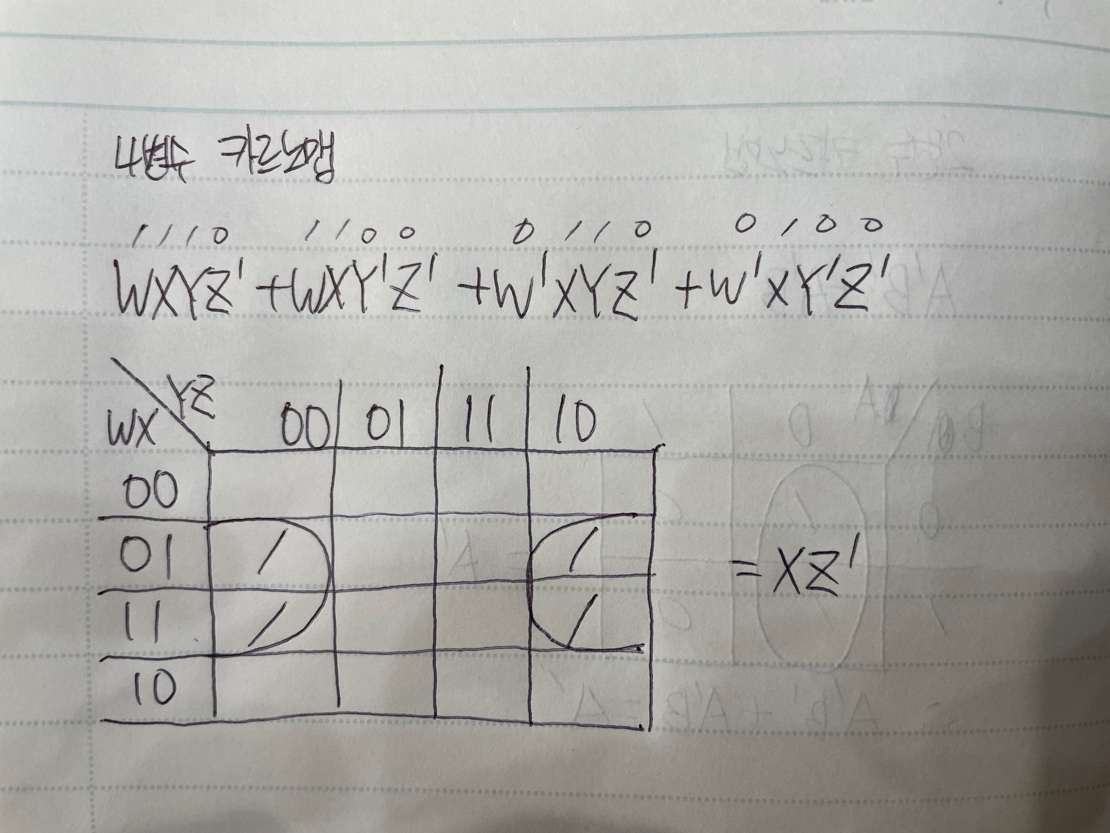 4변수 카르노맵
1110 1100 0110 0100
WXYZ' + WXY'Z' + W'XYZ' + W'XY'Z'
YZ
WX 00 01 11 10
00
01 1 1
11 1 1
10
= XZ'